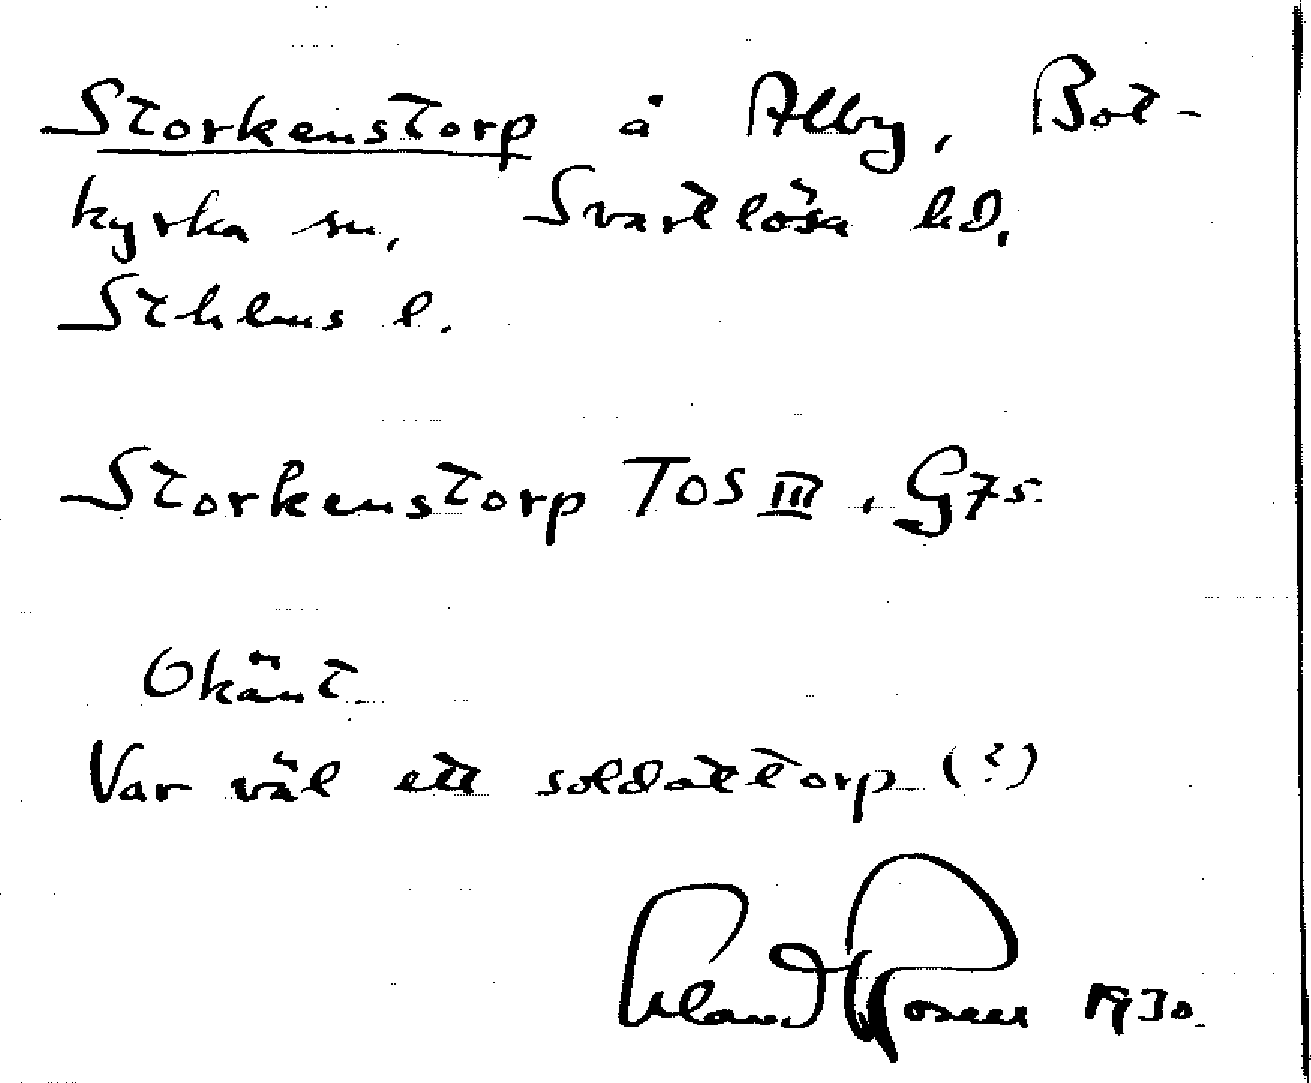 Storkenstorp å Alby, Bot-
kyrka sn, Svartlösa hd.
Sthlms l.
Storkenstorp TOS III. G 75.
Okänt
Var väl ett soldattorp (?)
Erland Rosell 1930.